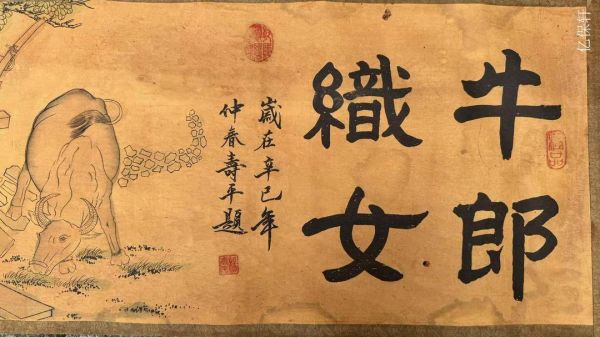 牛郎
織女
歲在辛巳年
仲春壽平題
亿保轩